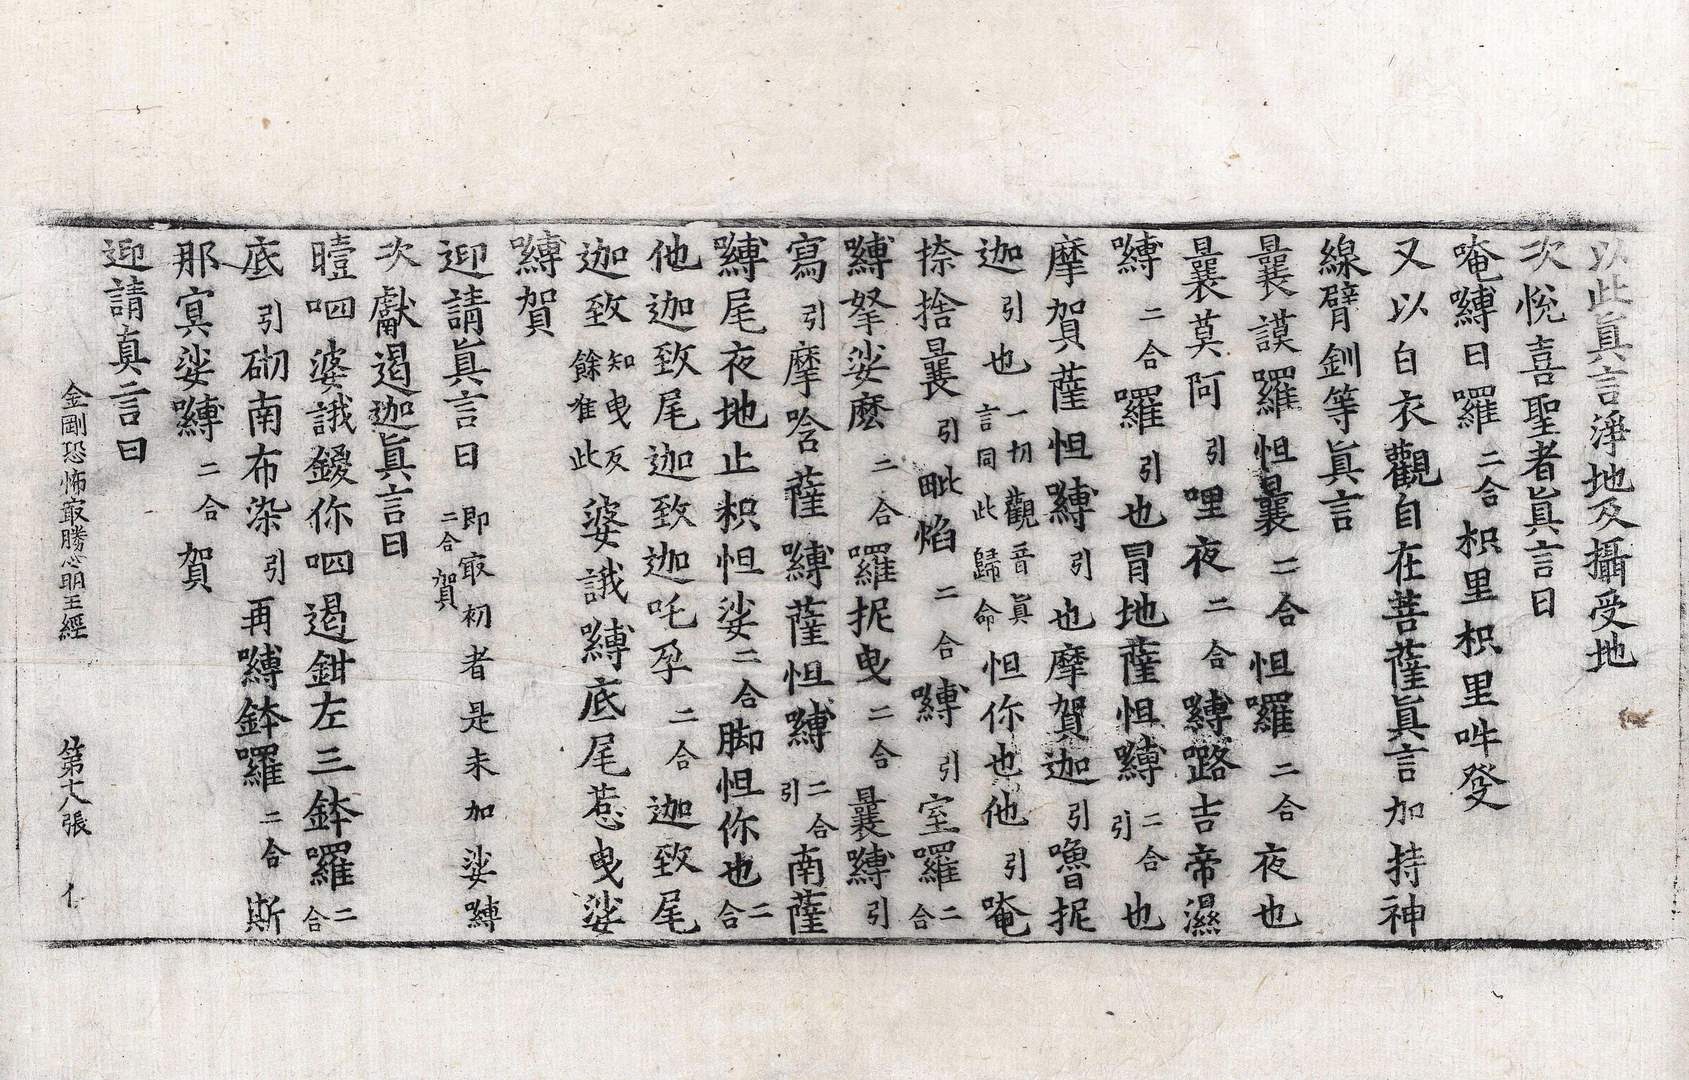 以此眞言淨地及攝受地
次悅喜聖者眞言曰
唵嚩日囉二合枳里枳里吽癹
又以白衣觀自在菩薩眞言加持神
線臂釧等眞言
曩謨囉怛曩二合怛囉二合夜也
曩莫阿引哩夜二合嚩路吉帝濕
嚩二合囉引也冒地薩怛嚩二合引也
摩賀薩怛嚩引也摩賀迦引嚕抳
迦引也一切觀音眞言同此歸命怛你也他引唵
捺捨曩引毗焰二合嚩引室囉二合
嚩拏娑麽二合囉抳曳二合曩嚩引
寫引摩唅薩嚩薩怛嚩二合引南薩
嚩尾夜地止枳怛娑二合脚怛你也二合
他迦致尾迦致迦吒孕二合迦致尾
迦致知曳反餘准此婆誐嚩底尾惹曳娑
嚩賀
迎請眞言曰即㝡初者是未加娑嚩二合賀
次獻遏迦眞言曰
曀呬婆誐鑁你呬遏鉗左三鉢囉二合
底引砌南布染引再嚩鉢囉二合斯
那寞娑嚩二合賀
迎請真言曰
金剛恐怖㝡勝心明王經 第十八張